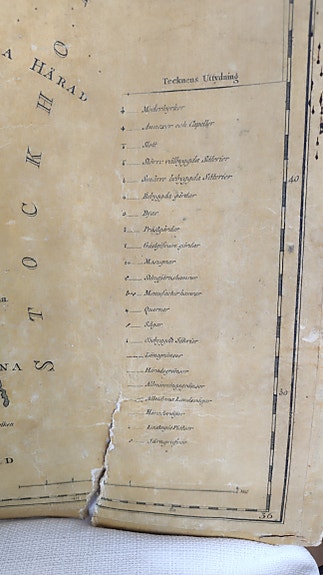 A HÄRAD
STOCKHO
Tecknens Uttydning
Moderkyrkor
Annexer och Capeller
Slott
Större välbyggda Säterier
Smärre bebyggda Säterier
Bebyggda gårdar
Byar
Prästgårdar
Gästgifvare gårdar
Masugnar
Stångjernshamrar
Manufacturhamrar
Quarnar
Sågar
Obebyggdt Säterier
Länsgränsor
Häradsgränsor
Allmänna Landsvägar
Häradsvägar
40
50
56
NA
D